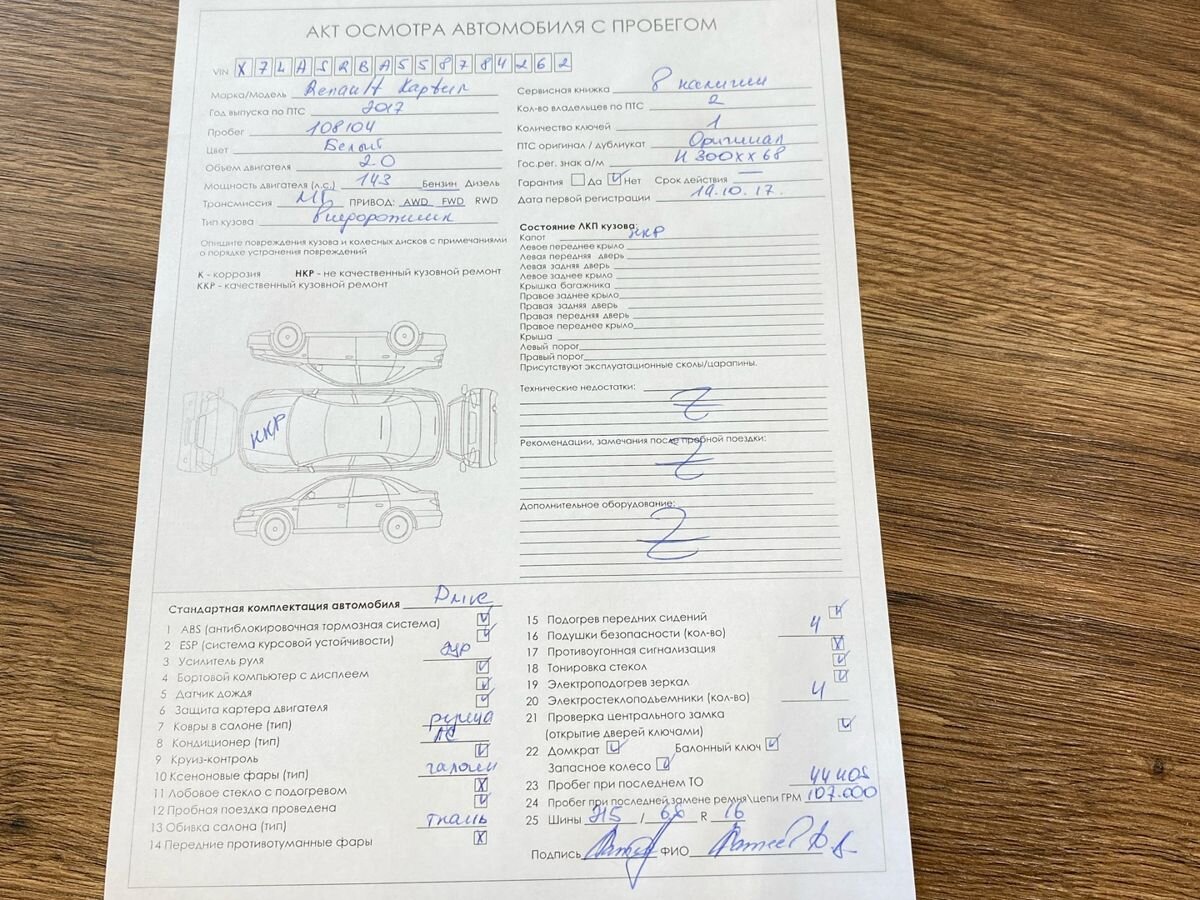 АКТ ОСМОТРА АВТОМОБИЛЯ С ПРОБЕГОМ
VIN X7LASRBA558784262
Марка/Модель Renault Каптюр
Год выпуска по ПТС 2017
Пробег 108104
Цвет Белый
Объем двигателя 2.0
Мощность двигателя (л.с.) 143 Бензин Дизель
Трансмиссия ПРИВОД: AWD FWD RWD
Тип кузова Внедорожник
Опишите повреждения кузова и колесных дисков с примечаниями
о порядке устранения повреждений
К - коррозия НКР - не качественный кузовной ремонт
ККР - качественный кузовной ремонт
НКР
Сервисная книжка В наличии
Кол-во владельцев по ПТС 2
Количество ключей 1
ПТС оригинал / дубликат Оригинал
Гос.рег. знак а/м Н300ХХ68
Гарантия Да Нет Срок действия —
Дата первой регистрации 19.10.17.
Состояние ЛКП кузова:
Капот НКР
Левое переднее крыло
Левая передняя дверь
Левая задняя дверь
Левое заднее крыло
Крышка багажника
Правое заднее крыло
Правая задняя дверь
Правая передняя дверь
Правое переднее крыло
Крыша
Левый порог
Правый порог
Присутствуют эксплуатационные сколы/царапины.
Технические недостатки:
Рекомендации, замечания после пробной поездки:
Дополнительное оборудование:
Стандартная комплектация автомобиля Drive
1 ABS (антиблокировочная тормозная система)
2 ESP (система курсовой устойчивости)
3 Усилитель руля ЭУР
4 Бортовой компьютер с дисплеем
5 Датчик дождя
6 Защита картера двигателя
7 Ковры в салоне (тип) резина
8 Кондиционер (тип) AC
9 Круиз-контроль
10 Ксеноновые фары (тип) галоген
11 Лобовое стекло с подогревом
12 Пробная поездка проведена
13 Обивка салона (тип) ткань
14 Передние противотуманные фары
15 Подогрев передних сидений
16 Подушки безопасности (кол-во) 4
17 Противоугонная сигнализация
18 Тонировка стекол
19 Электроподогрев зеркал
20 Электростеклоподъемники (кол-во) 4
21 Проверка центрального замка
(открытие дверей ключами)
22 Домкрат Балонный ключ
Запасное колесо
23 Пробег при последнем ТО
24 Пробег при последней замене ремня\цепи ГРМ 107.000
25 Шины 215 / R 16
Подпись ФИО